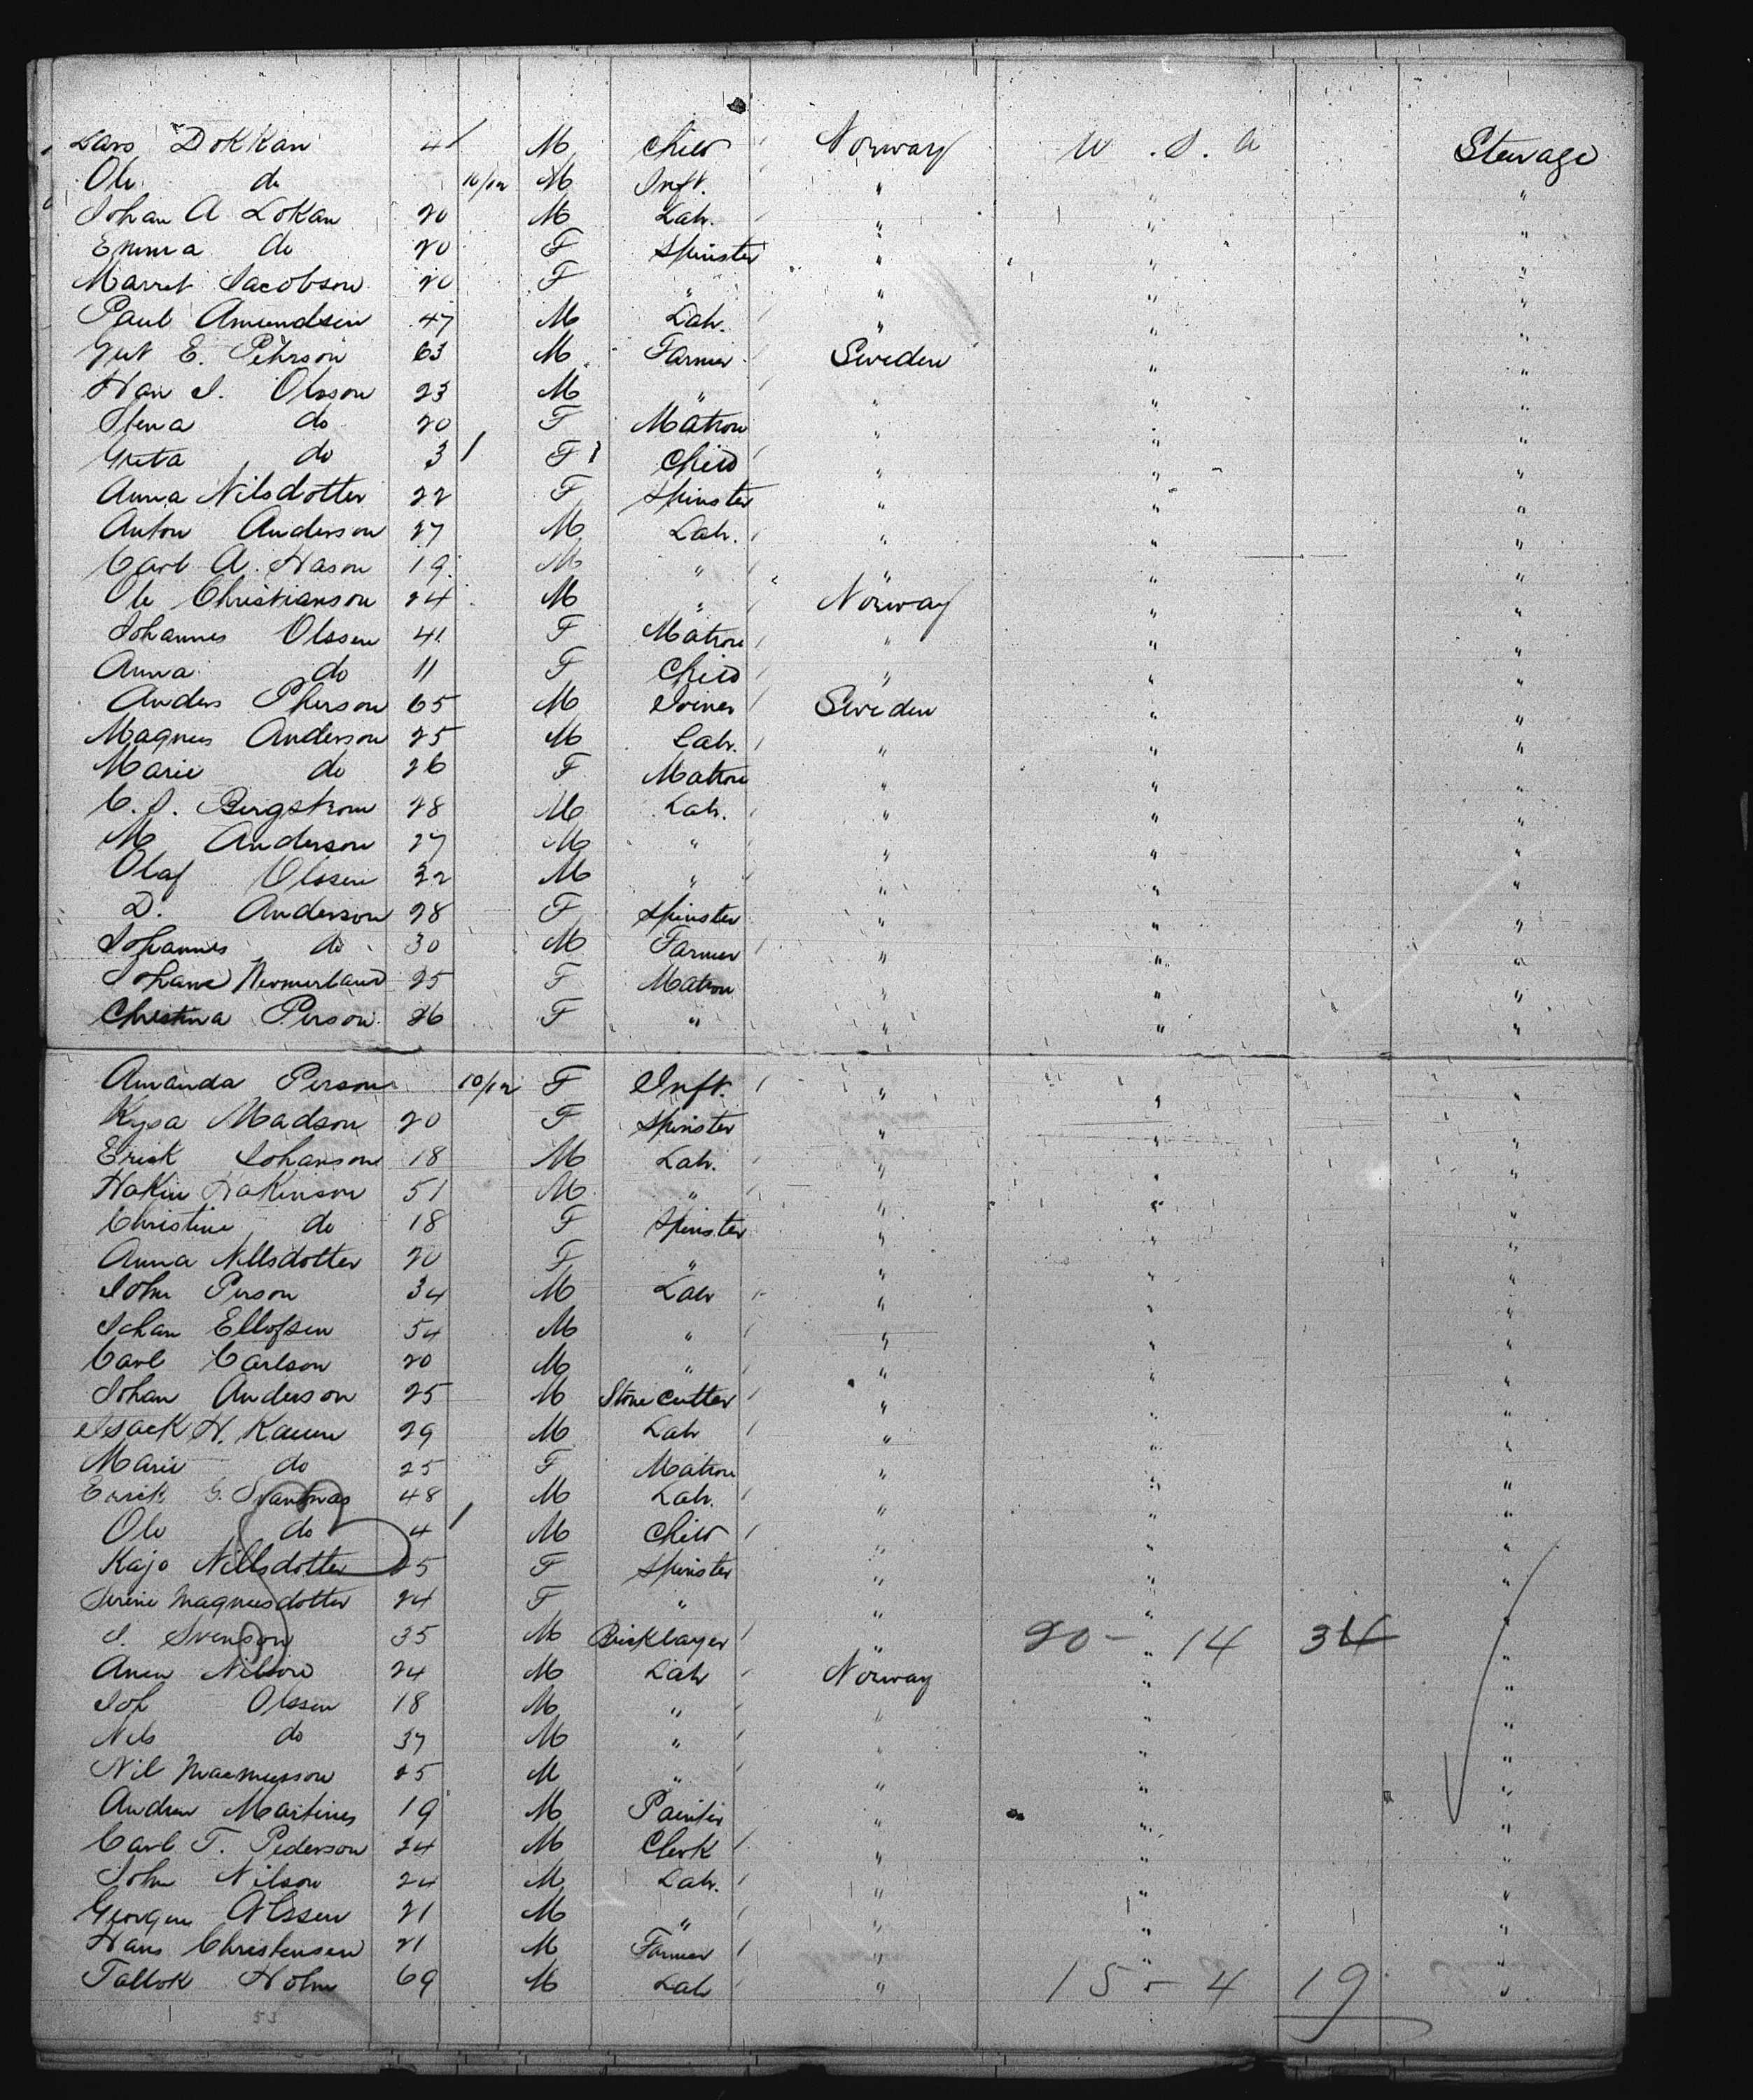 Lars Dokkan 4 M Child Norway U.S.A Steerage
Ole do 10/12 M Inft. " " "
Johan A Lokan 20 M Lab. " " "
Emma do 20 F Spinster " " "
Marret Jacobson 20 F " " " "
Paul Amundsen 47 M Lab. " " "
E. Pehrson 63 M Farmer Sweden " "
Han J. Olsson 23 M " " " "
Stena do 20 F Matron " " "
Greta do 3 F Child " " "
Anna Nilsdotter 22 F Spinster " " "
Anton Anderson 27 M Lab. " " "
Carl A. Hason 19 M " " " "
Ole Christianson 24 M " Norway " "
Johannes Olssen 41 F Matron " " "
Anna do 11 F Child " " "
Anders Pherson 65 M Joiner Sweden " "
Magnus Anderson 25 M Lab. " " "
Marie do 26 F Matron " " "
C. J. Bergstrom 28 M Lab. " " "
M Anderson 27 M " " " "
Olaf Olssen 32 M " " " "
D. Anderson 28 F Spinster " " "
Johannes do 30 M Farmer " " "
Johane 25 F Matron " " "
Christina Person 26 F " " " "
Amanda Person 10/12 F Inft. " " "
Kysa Madson 20 F Spinster " " "
Erick Johanson 18 M Lab. " " "
Hakin Hakinson 51 M " " " "
Christine do 18 F Spinster " " "
Anna Nillsdotter 20 F " " " "
John Person 34 M Lab " " "
Johan Ellofsen 54 M " " " "
Carl Carlson 20 M " " " "
Johan Anderson 25 M Stone Cutter " " "
Isack H. 29 M Lab " " "
Marie do 25 F Matron " " "
Erick G. 48 M Lab. " " "
Ole do 4 M Child " " "
Kajo Nillsdotter 25 F Spinster " " "
Serine Magnusdotter 24 F " " " "
J. Svenson 35 M Bricklayer " " 20 - 14 34 "
Nilson 24 M Lab Norway " "
Joh Olssen 18 M " " " "
Nils do 37 M " " " "
Nil 25 M " " " "
Andrew Martines 19 M Painter " " "
Carl T. Pederson 24 M Clerk " " "
John Nilson 24 M Lab. " " "
Georgen Olssen 21 M " " " "
Hans Christensen 21 M Farmer " " "
Tallok Holm 69 M Lab " 15 - 4 19 "
53